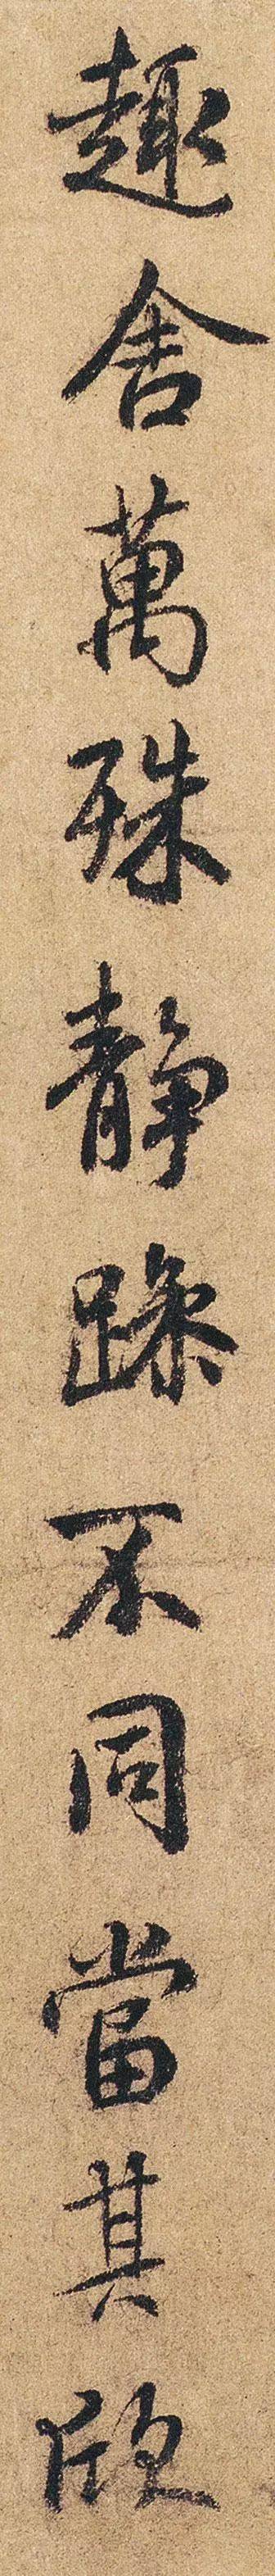 趣舎萬殊静躁不同當其欣